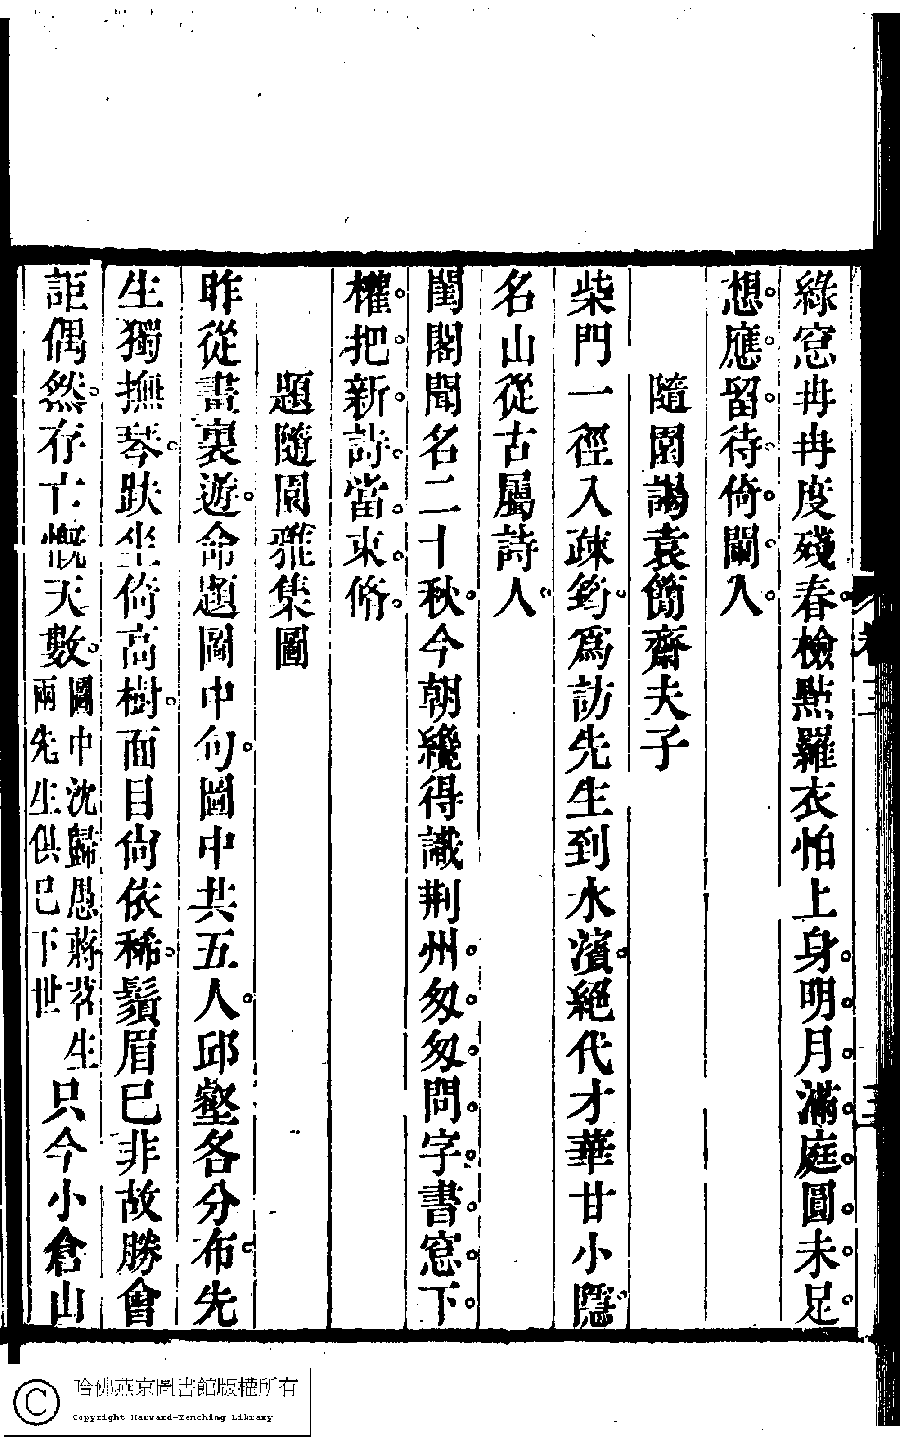 綠窓冉冉度殘春檢點羅衣怕上身明月滿庭圓未足
想應留待倚闌人
隨園謁袁簡齋夫子
柴門一徑入疎筠爲訪先生到水濱絕代才華甘小隱
名山從古屬詩人
閨閣聞名二十秋今朝纔得識荆州匆匆問字書窓下
權把新詩當束脩
題隨園雅集圖
昨從書裏遊命題圖中句圖中共五人邱壑各分布先
生獨撫琴趺坐倚高樹面目尙依稀鬚眉已非故勝會
詎偶然存亡慨天數圖中沈歸愚蔣苕生兩先生俱已下世只今小倉山
卷三
哈佛燕京圖書館版權所有
Copyright Harvard-Yenching Library